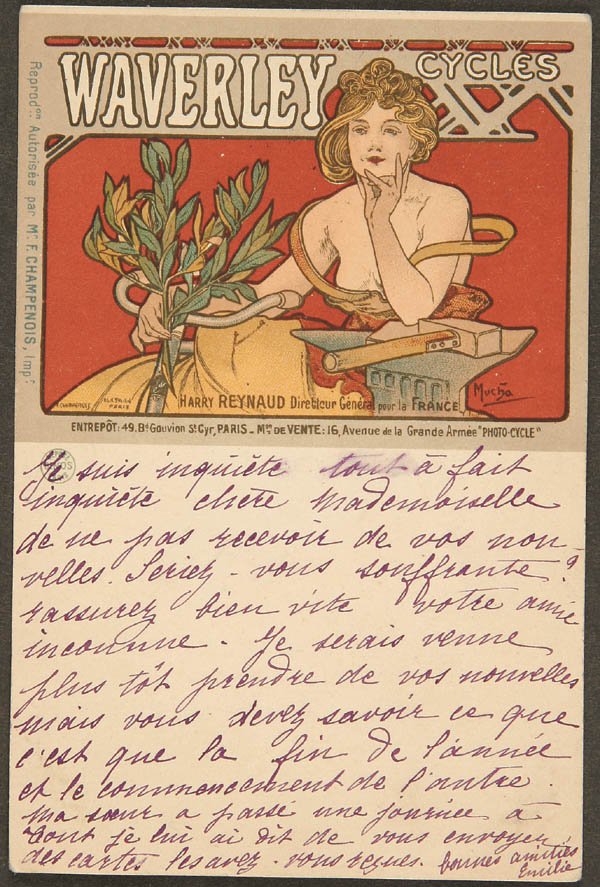 WAVERLEY CYCLES
Reprod.on Autorisée par Mr. F. CHAMPENOIS, Imp.r
HARRY REYNAUD Directeur Général pour la FRANCE
Mucha
ENTREPÔT: 49. Bd Gouvion St Cyr, PARIS - Mon DE VENTE: 16, Avenue de la Grande Armée "PHOTO-CYCLE"
Je suis inquiète tout à fait
inquiéte chere Mademoiselle
de ne pas recevoir de vos nou-
velles. Seriez-vous souffrante?
rassurez bien vite votre amie
inconnue - Je serais venue
plus tôt prendre de vos nouvelles
mais vous devez savoir ce que
c'est que la fin de l'année
et le commencement de l'autre.
Ma sœur a passé une journée à
je lui ai dit de vous envoyer
des cartes les avez-vous reçues. bonnes amitiés
Emilie